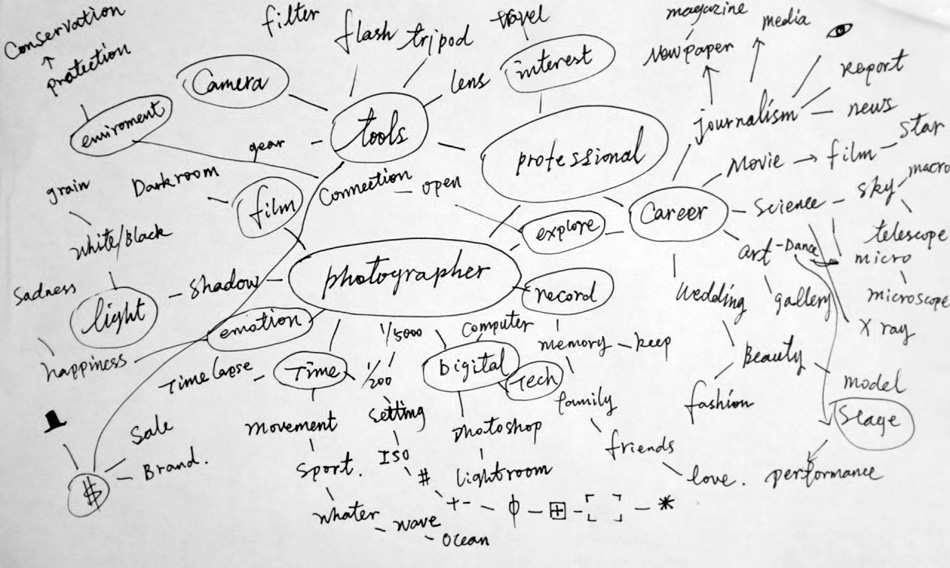 Conservation
protection
filter
flash
tripod
travel
magazine
media
Newpaper
Camera
lens
interest
report
enviroment
tools
journalism
news
gear
professional
Movie
film
star
grain
Darkroom
film
Connection
open
Career
Science
sky
macro
White/Black
explore
art
Dance
telescope
micro
Sadness
light
shadow
photographer
record
wedding
gallery
microscope
emotion
1/5000
computer
memory
keep
X ray
happiness
Time lapse
Time
1/200
Digital
Tech
Beauty
model
family
fashion
Stage
Sale
movement
setting
photoshop
friends
Brand.
sport.
ISO
lightroom
love.
performance
$
#
+-
whater
wave
ocean